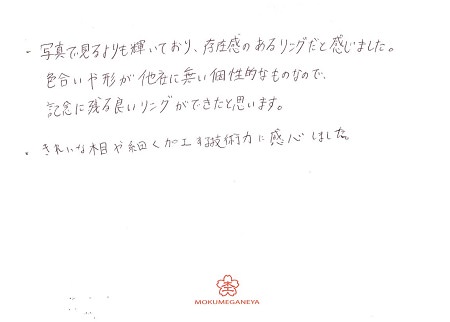 - 写真で見るよりも輝いており、存在感のあるリングだと感じました。
色合いや形が他社に無い個性的なものなので、
記念に残る良いリングができたと思います。
・きれいな木目や細く加工する技術力に感心しました。
MOKUMEGANEYA